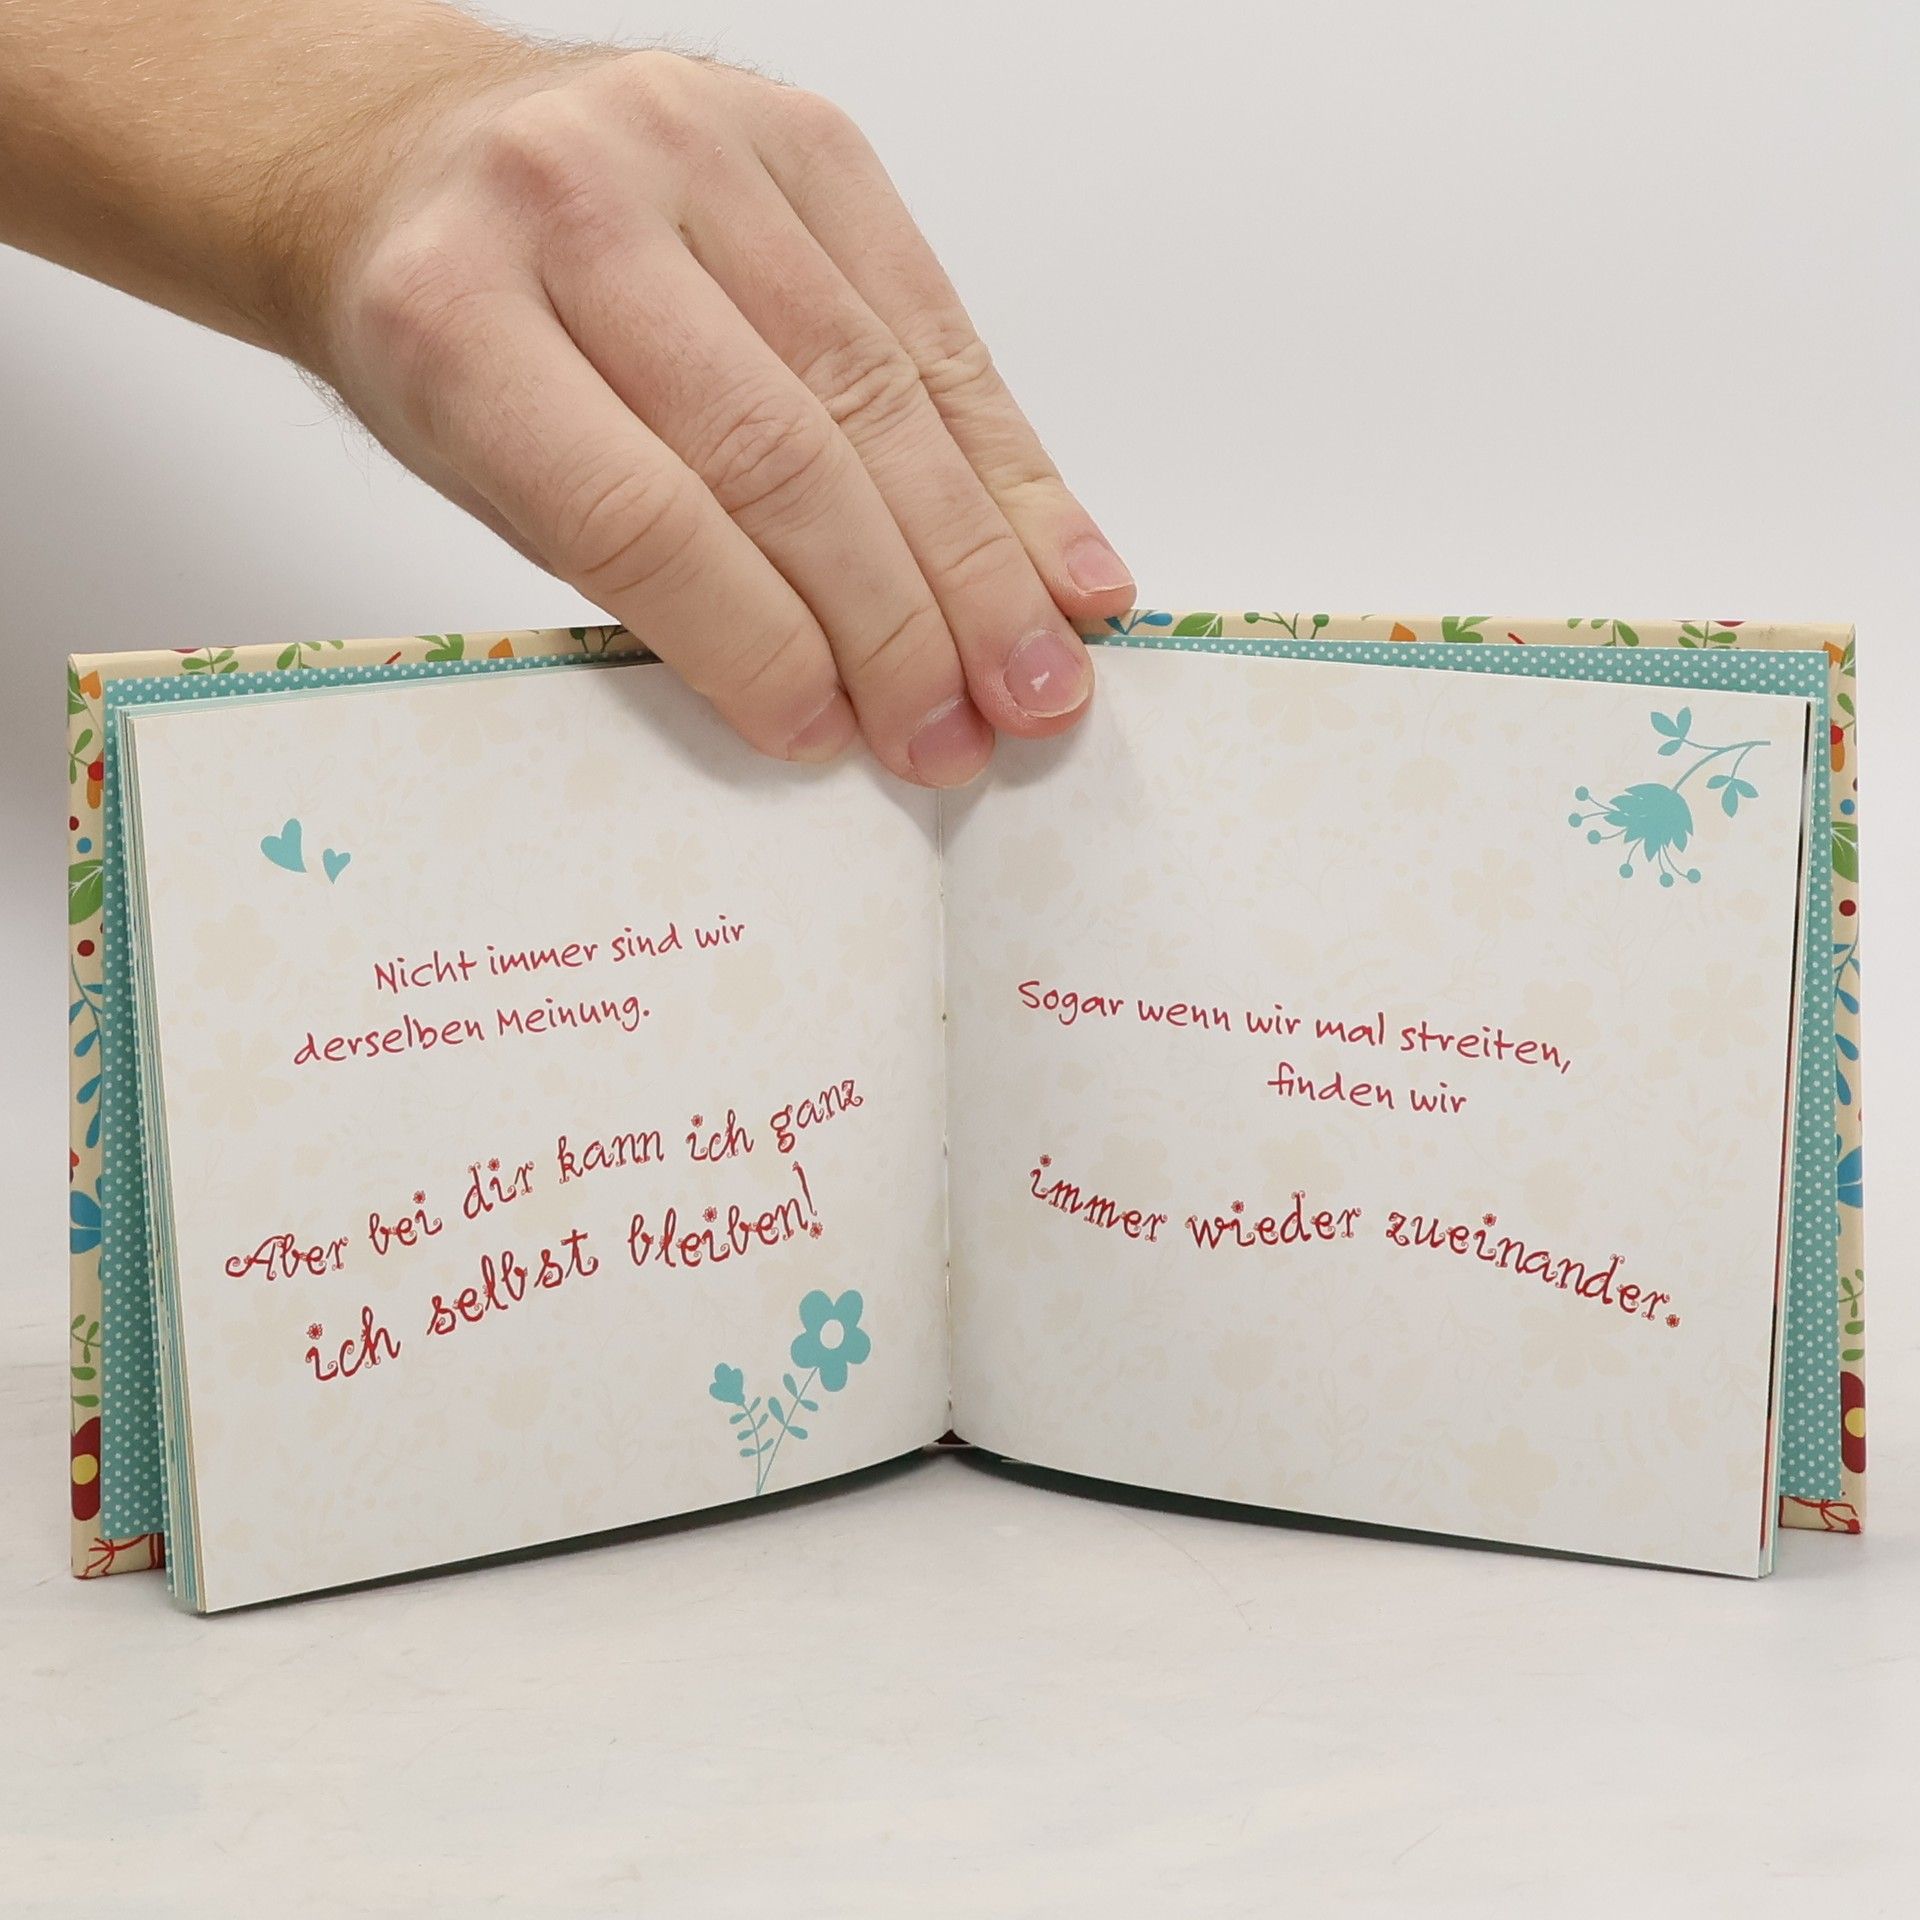 Nicht immer sind wir
derselben Meinung.
Aber bei dir kann ich ganz
ich selbst bleiben!
Sogar wenn wir mal streiten,
finden wir
immer wieder zueinander.